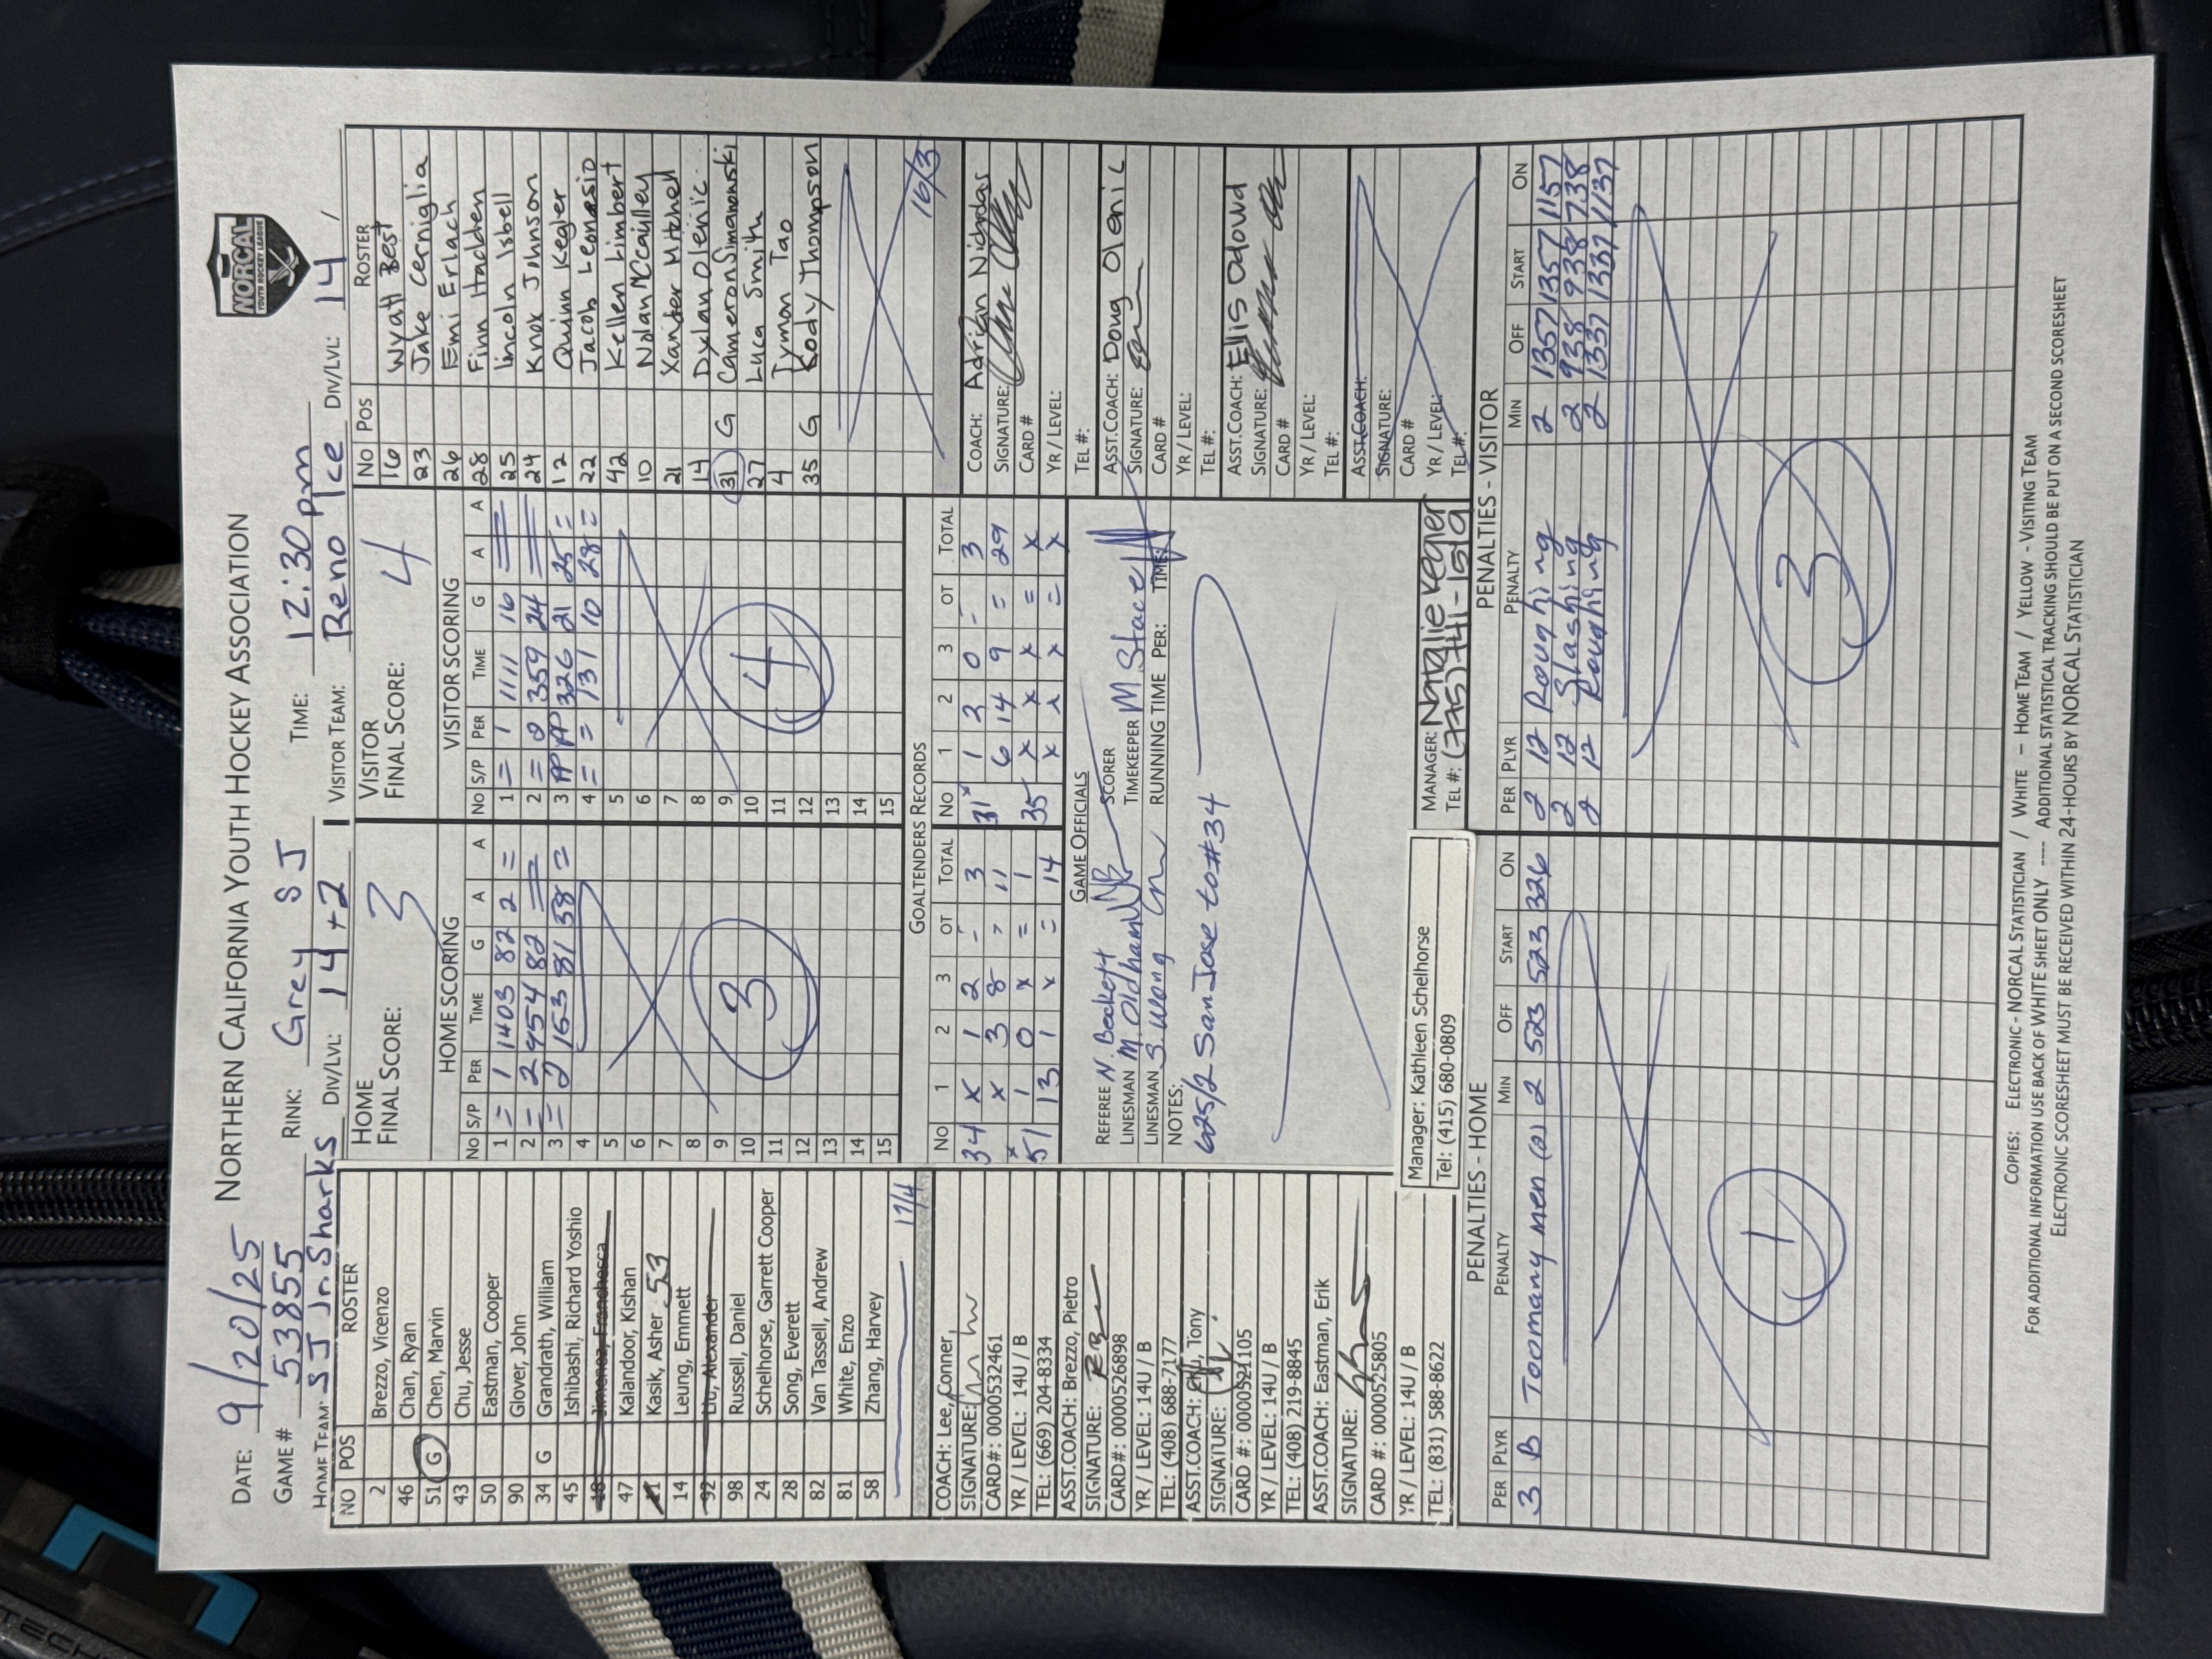 NORTHERN CALIFORNIA YOUTH HOCKEY ASSOCIATION
NORCAL
YOUTH HOCKEY LEAGUE
DATE: 9/20/25
GAME # 53855 RINK: Grey SJ TIME: 12:30pm
HOME TEAM: SJ Jr. Sharks DIV/LVL: 14 +2 VISITOR TEAM: Reno Ice DIV/LVL: 14 /
NO POS ROSTER
2 Brezzo, Vicenzo
46 Chan, Ryan
51 G Chen, Marvin
43 Chu, Jesse
50 Eastman, Cooper
90 Glover, John
34 G Grandrath, William
45 Ishibashi, Richard Yoshio
18 Jimenez, Franchesca
47 Kalandoor, Kishan
Kasik, Asher 53
14 Leung, Emmett
92 Liu, Alexander
98 Russell, Daniel
24 Schelhorse, Garrett Cooper
28 Song, Everett
82 Van Tassell, Andrew
81 White, Enzo
58 Zhang, Harvey
17/4
COACH: Lee, Conner,
SIGNATURE:
CARD#: 0000532461
YR / LEVEL: 14U / B
TEL: (669) 204-8334
ASST.COACH: Brezzo, Pietro
SIGNATURE:
CARD#: 0000526898
YR / LEVEL: 14U / B
TEL: (408) 688-7177
ASST.COACH: Chu, Tony
SIGNATURE:
CARD #: 0000521105
YR / LEVEL: 14U / B
TEL: (408) 219-8845
ASST.COACH: Eastman, Erik
SIGNATURE:
CARD #: 0000525805
YR / LEVEL: 14U / B
TEL: (831) 588-8622
HOME
FINAL SCORE: 3
HOME SCORING
No S/P PER TIME G A A
1 = 1 1403 82 2 =
2 = 2 454 82 =
3 = 2 153 81 58 =
4
5
6
7
8
9
10
11
12
13
14
15
3
VISITOR
FINAL SCORE: 4
VISITOR SCORING
No S/P PER TIME G A A
1 = 1 1111 16 =
2 = 2 359 24 =
3 PP PP 326 21 25 =
4 = = 131 10 28 =
5
6
7
8
9
10
11
12
13
14
15
4
NO POS ROSTER
16 Wyatt Best
23 Jake Cerniglia
26 Emi Erlach
28 Finn Hadden
25 lincoln Isbell
24 Knox Johnson
12 Quinn Kegler
22 Jacob Leonesio
42 Kellen Limbert
10 Nolan McCaulley
21 Xander Mitchell
14 Dylan Olenic
31 G Cameron Simanowski
27 Luca Smith
4 Tyman Tao
35 G Kody Thompson
16/3
GOALTENDERS RECORDS
No 1 2 3 OT TOTAL No 1 2 3 OT TOTAL
34 x 1 2 - 3 31 1 2 0 - 3
x 3 8 = 11 6 14 9 = 29
51 1 0 x = 1 35 x x x = x
13 1 x = 14 x x x = x
GAME OFFICIALS
REFEREE N. Beckett SCORER
LINESMAN M. Oldham TIMEKEEPER M. Stacel
LINESMAN S. Wong RUNNING TIME PER: TIME:
NOTES:
625/2 San Jose to #34
COACH: Adrian Nicholas
SIGNATURE:
CARD #
YR / LEVEL:
TEL #:
ASST.COACH: Doug Olenic
SIGNATURE:
CARD #
YR / LEVEL:
TEL #:
ASST.COACH: Ellis Odowd
SIGNATURE:
CARD #
YR / LEVEL:
TEL #:
ASST.COACH:
SIGNATURE:
CARD #
YR / LEVEL:
TEL #:
Manager: Kathleen Schelhorse
Tel: (415) 680-0809
MANAGER: Natalie Kegler
TEL #: (775) 741-1519
PENALTIES - HOME
PER PLYR PENALTY MIN OFF START ON
3 B Too many men (a) 2 523 523 326
1
PENALTIES - VISITOR
PER PLYR PENALTY MIN OFF START ON
2 12 Roughing 2 1357 1357 1157
2 12 Slashing 2 938 938 738
2 12 Roughing 2 1337 1337 1137
3
COPIES: ELECTRONIC - NORCAL STATISTICIAN / WHITE - HOME TEAM / YELLOW - VISITING TEAM
FOR ADDITIONAL INFORMATION USE BACK OF WHITE SHEET ONLY ---- ADDITIONAL STATISTICAL TRACKING SHOULD BE PUT ON A SECOND SCORESHEET
ELECTRONIC SCORESHEET MUST BE RECEIVED WITHIN 24-HOURS BY NORCAL STATISTICIAN